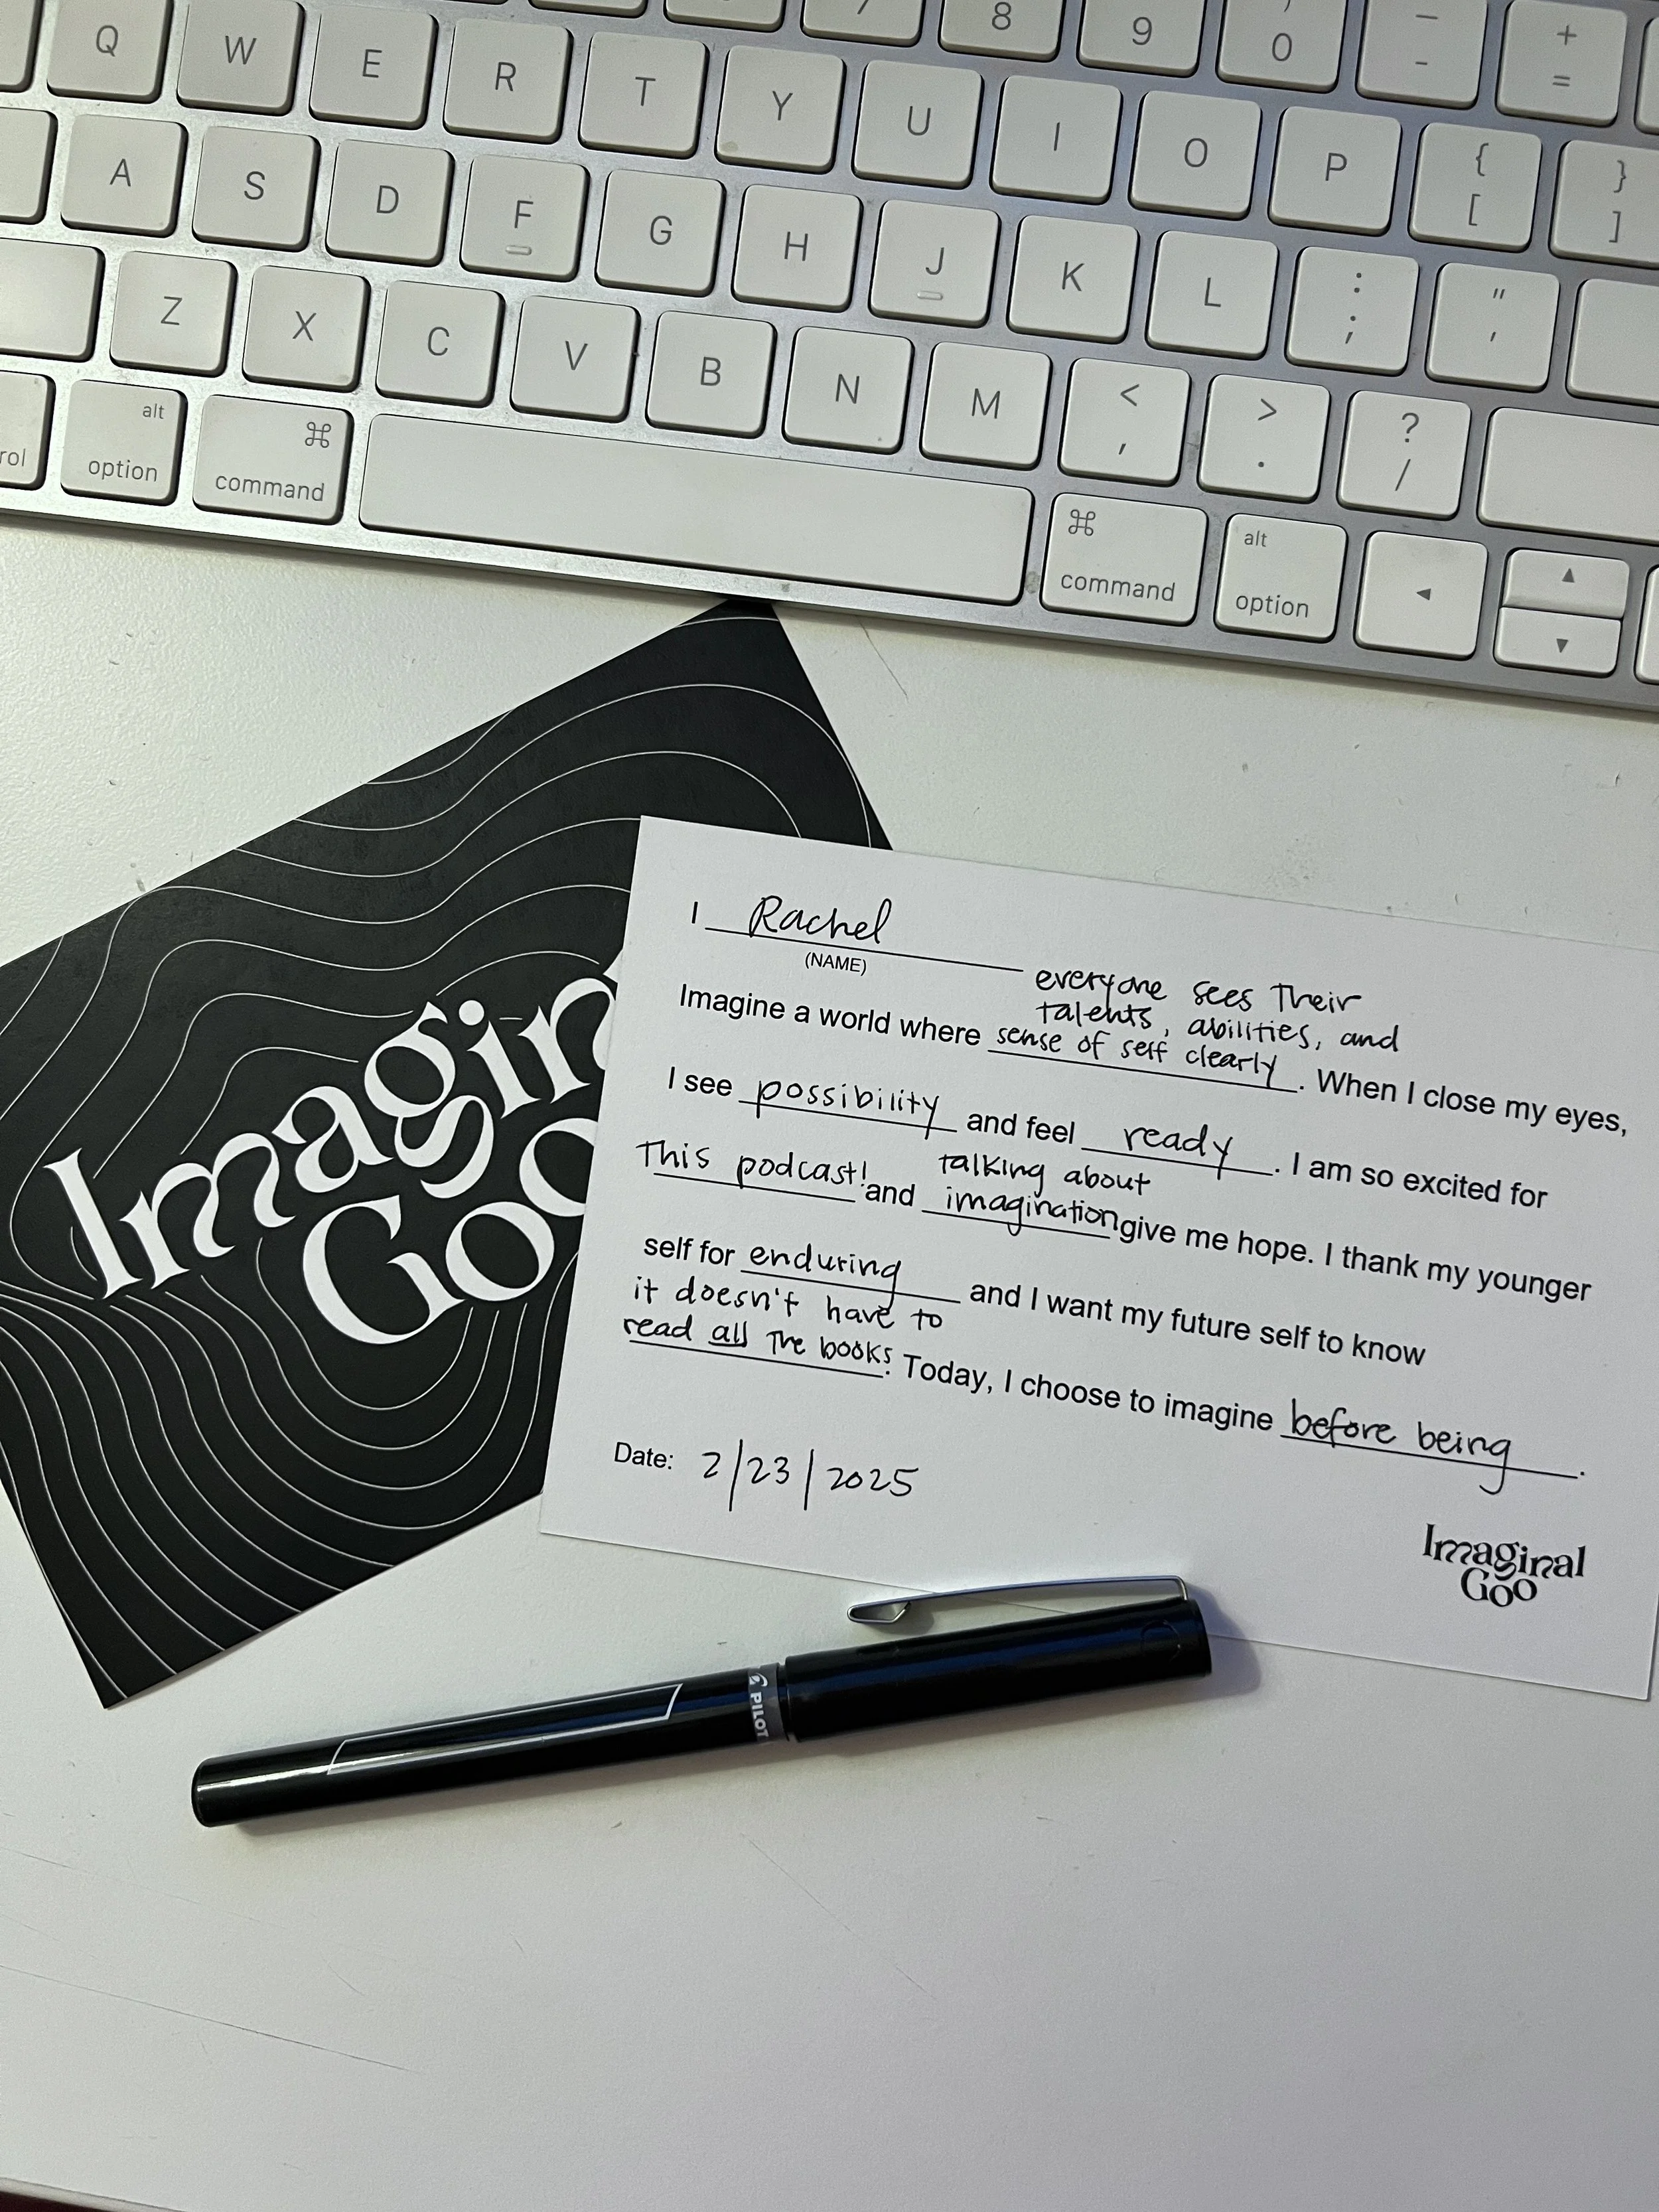 7 8 9 ) 0 — - + =
Q W E R T Y U I O P { [ } ]
A S D F G H J K L : ; " '
Z X C V B N M < , > . ? /
alt option ⌘ command ⌘ command alt option ◄ ▲ ▼
Imagin
Goo
I Rachel
(NAME)
everyone sees Their
talents, abilities, and
Imagine a world where sense of self clearly. When I close my eyes,
I see possibility and feel ready. I am so excited for
talking about
This podcast! and imagination give me hope. I thank my younger
self for enduring and I want my future self to know
it doesn't have to
read all The books. Today, I choose to imagine before being.
Date: 2/23/2025
Imaginal
Goo
PILOT